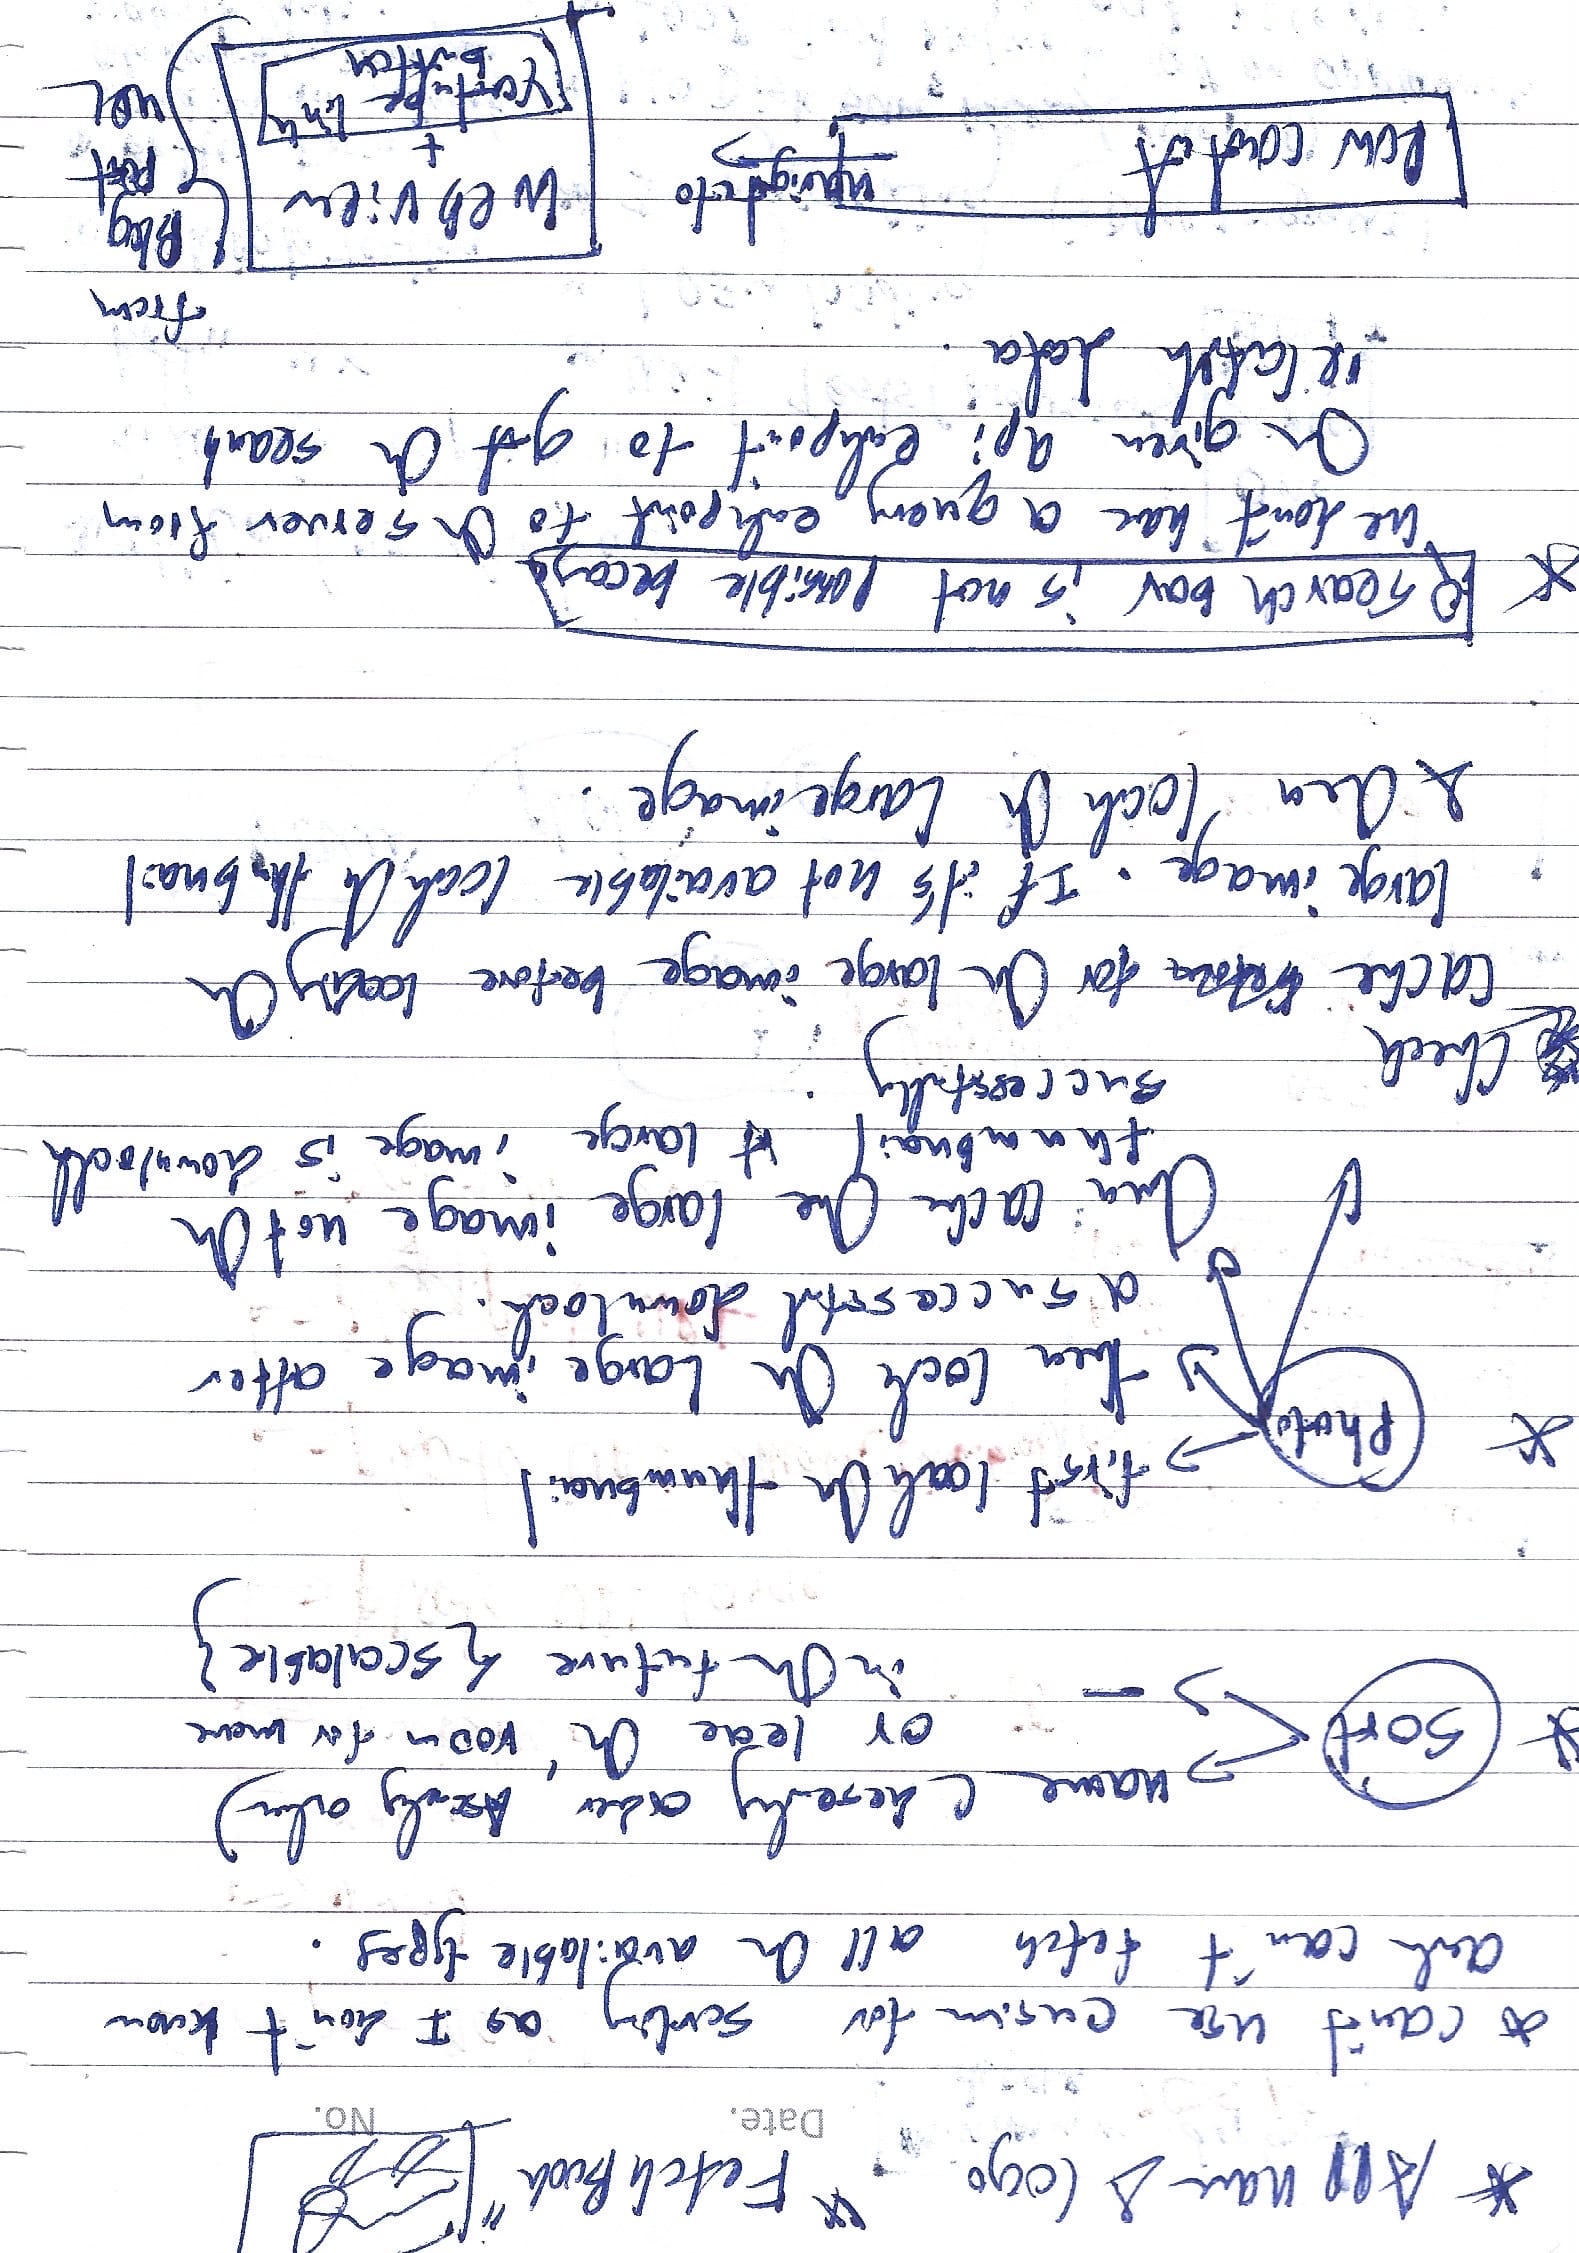 * App name & logo . " FetchBook"
Date. No.
* can't use cusine for sorting as I don't know
and can't fetch all the available types.
* Sort → name (desending order, Asending order)
→ — or leave the room for more
in the future {scalable}
* Photo → first load the thumbnail
then load the Large image after
a successful download.
then cache the large image not the
thumbnail if large image is download
successfully.
Check
cache for the large image before loading the
large image. If it's not available load the thumbnail
& then load the Large image.
* search bar is not possible because
we don't have a query endpoint to the server from
the given api endpoint to get the search
related data.
from
Row content navigate to Web view Blog
+ post
Youtube link URL
button